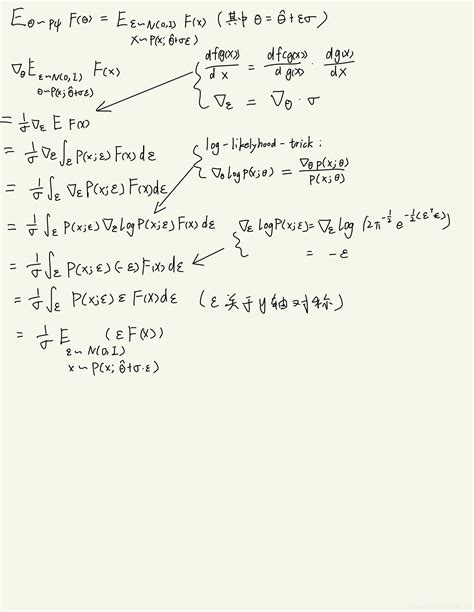 E_{θ∼pψ} F(θ) = E_{ε∼N(0,I)} F(x) (其中 θ = θ̂+εσ)
x∼P(x;θ̂+σε)
∇_θ E_{ε∼N(0,I)} F(x)
θ∼P(x;θ̂+σε)
{ df(g(x))/dx = df(g(x))/dg(x) · dg(x)/dx
∇_ε = ∇_θ · σ
= 1/σ ∇_ε E F(x)
= 1/σ ∇_ε ∫_ε P(x;ε) F(x) dε
{ log-likelyhood-trick:
∇_θ log P(x;θ) = ∇_θ P(x;θ) / P(x;θ)
= 1/σ ∫_ε ∇_ε P(x;ε) F(x) dε
= 1/σ ∫_ε P(x;ε) ∇_ε log P(x;ε) F(x) dε
{ ∇_ε log P(x;ε) = ∇_ε log (2π^{-1/2} e^{-1/2(ε^T ε)})
= -ε
= 1/σ ∫_ε P(x;ε) (-ε) F(x) dε
= 1/σ ∫_ε P(x;ε) ε F(x) dε (ε 关于 y 轴对称)
= 1/σ E (ε F(x))
ε∼N(0,I)
x∼P(x;θ̂+σ·ε)